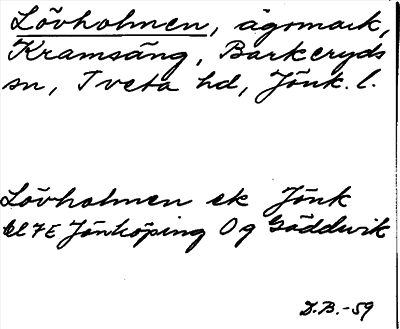 Lövholmen, ägomark,
Kramsäng, Barkeryds
sn, Tveta hd, Jönk. l.
Lövholmen ek Jönk
bl 7E Jönköping Og Göddevik
D.B.-59